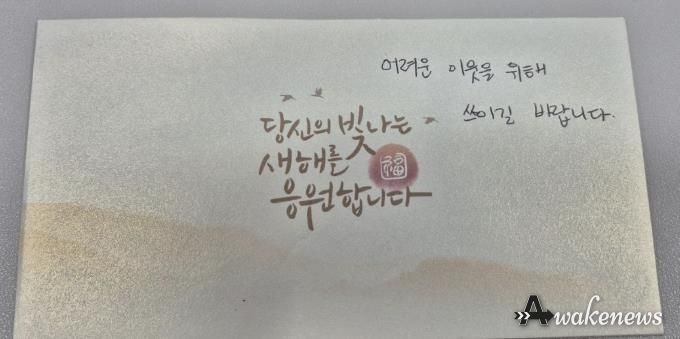 어려운 이웃을 위해
쓰이길 바랍니다.
당신의 빛나는
새해를
福
응원합니다
Awakenews